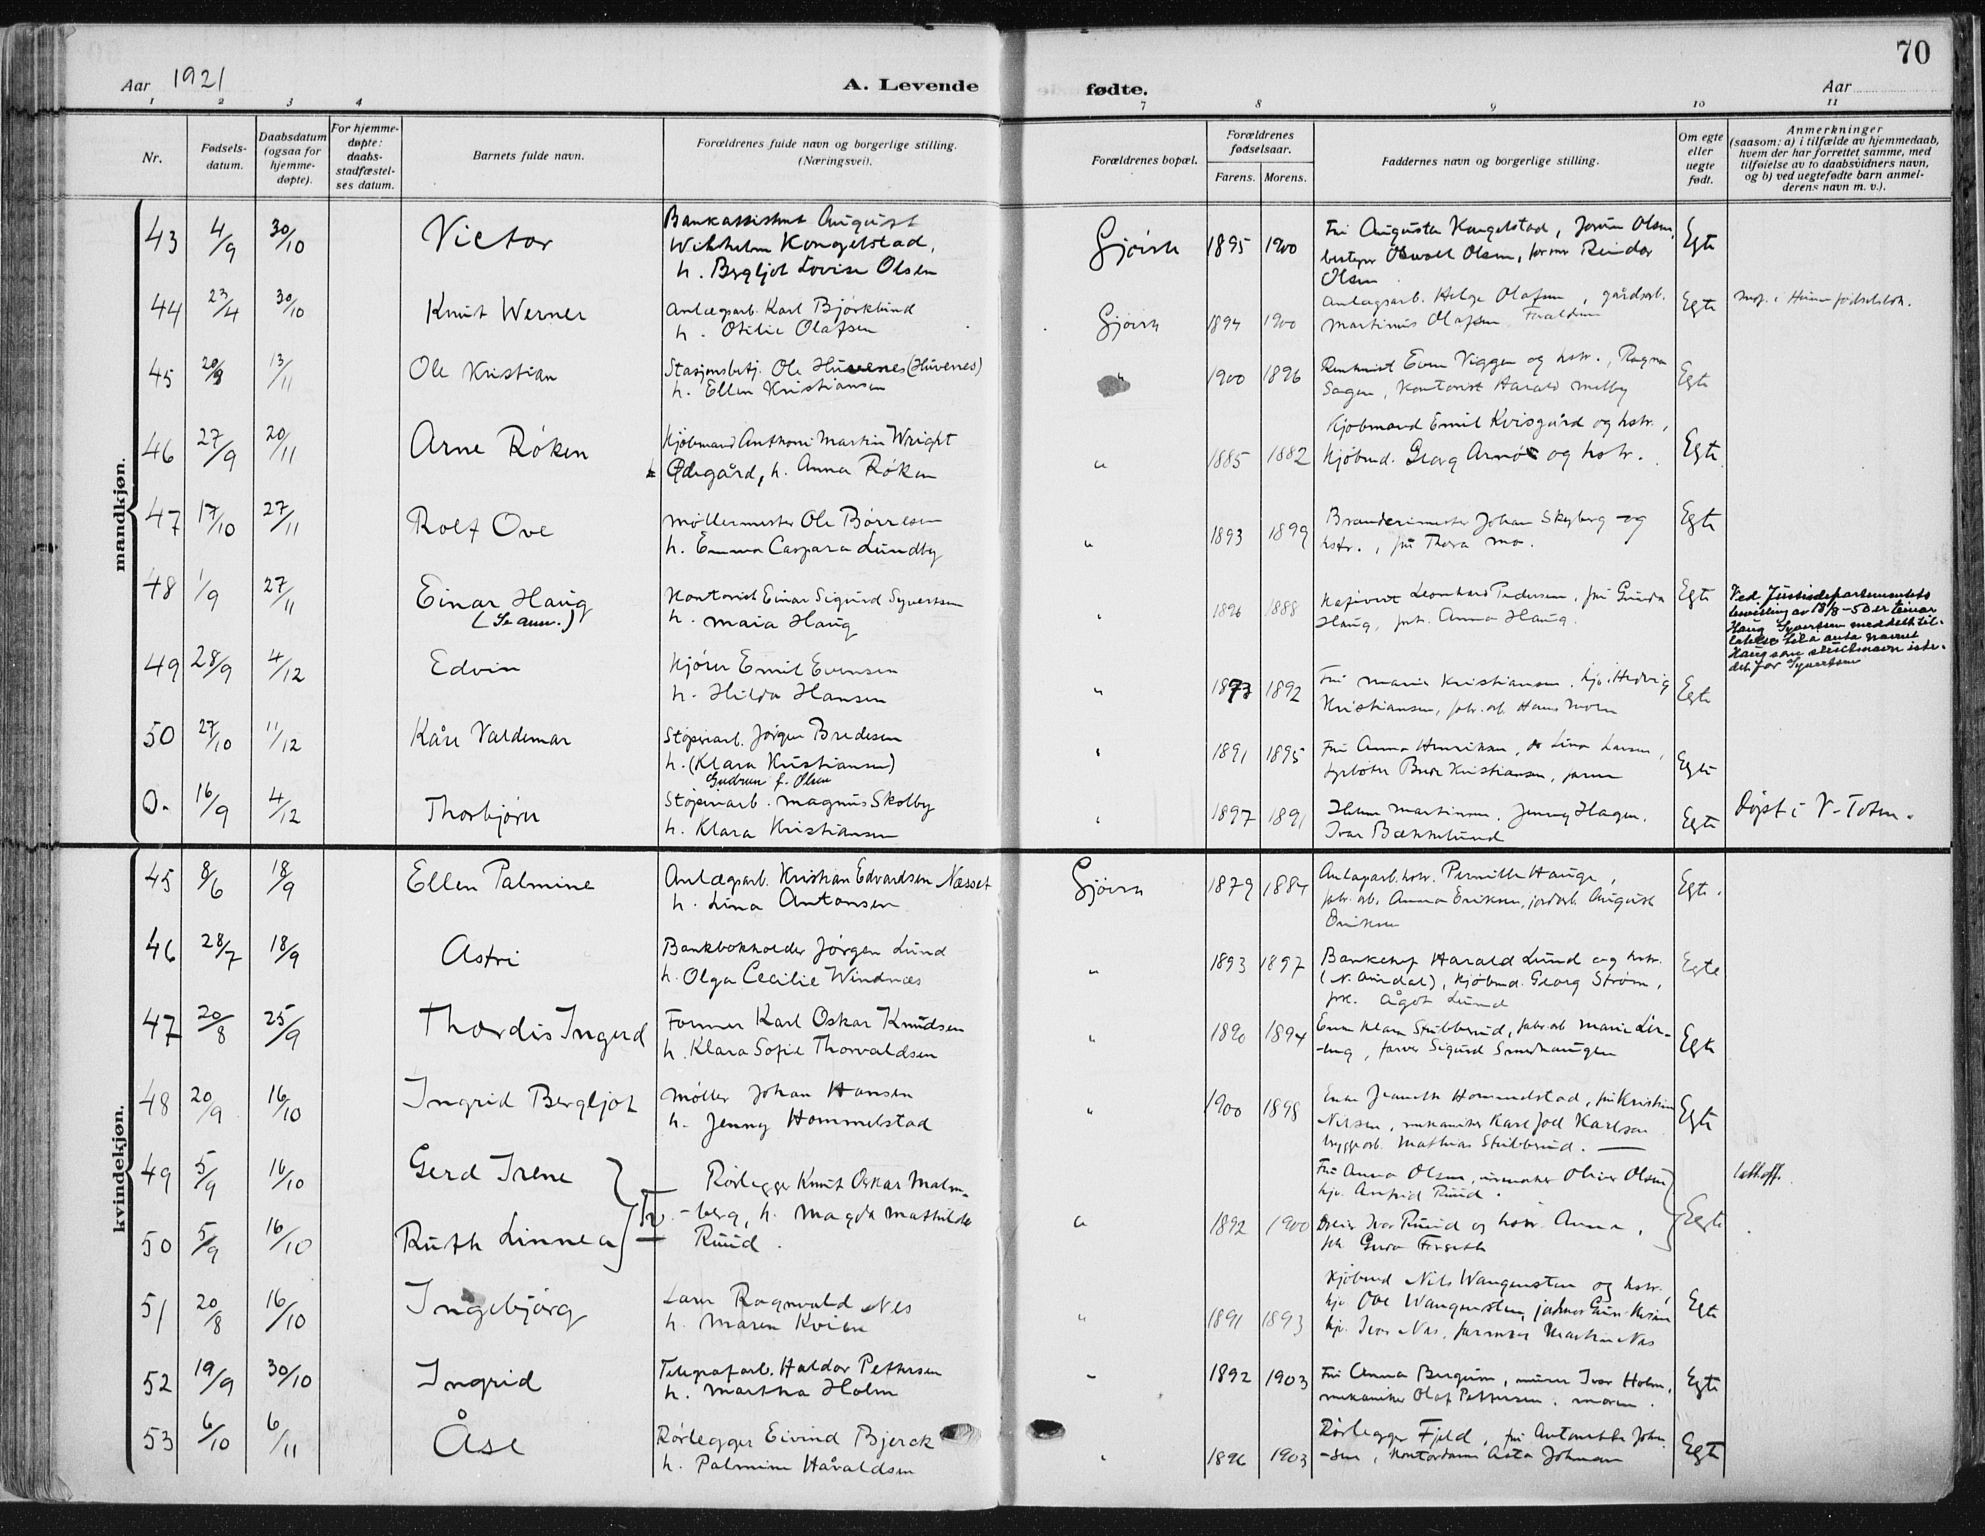 70
Aar 1921
A. Levende
fødte.
Aar
1 2 3 4 7 8 9 10 11
Nr.
Fødsels-
datum.
Daabsdatum
(ogsaa for
hjemme-
døpte).
For hjemme-
døpte:
daabs-
stadfæstel-
ses datum.
Barnets fulde navn.
Forældrenes fulde navn og borgerlige stilling.
(Næringsvei).
Forældrenes bopæl.
Forældrenes
fødselsaar.
Farens. Morens.
Faddernes navn og borgerlige stilling.
Om egte
eller
uegte
født.
Anmerkninger
(saasom: a) i tilfælde av hjemmedaab,
hvem der har forrettet samme, med
tilføielse av to daabsvidners navn,
og b) ved uegtefødte barn anmel-
derens navn m. v.).
mandkjøn.
43 4/9 30/10 Victor
Bankassistent August
Wilhelm Kongelstad,
h. Bergljot Lovise Olsen
Gjøvik 1895 1900
Fru Augusta Kongelstad, Jorun Olsen,
bestyrer Oswald Olsen, former Reidar
Olsen
Egte
44 23/4 30/10 Knut Werner
Anlægsarb. Karl Bjørklund
h. Otilie Olafsen
Gjøvik 1894 1900
Anlægsarb. Helge Olafsen, gårdsarb.
Martinus Olafsen Forældrene
Egte
45 20/9 13/11 Ole Kristian
Stasjonsbetj. Ole Huvenes (Huvenes)
h. Ellen Kristiansen
" 1900 1896
Even Viggen og hstr., Ragna
Sagen, Kontorist Harald Melby
Egte
46 27/9 20/11 Arne Røken
Kjøbmand Anthoni Martin Wright
Ødegård, h. Anna Røken
" 1885 1882
Kjøbmand Emil Kvisgård og hstr.,
kjøbmd. Georg Arnø og hstr.
Egte
47 17/10 27/11 Rolf Ove
Møllermester Ole Børresen
h. Emma Caspara Lundby
" 1893 1899
Brænderimester Johan Skyberg og
hstr., fru Thora Mo.
Egte
48 1/9 27/11 Einar Haug
(Se anm.)
Kontorist Einar Sigurd Syvertsen
h. Maia Haug
" 1896 1888
Leonhard Pedersen, fru Gunda
Haug, frk. Anna Haug.
Egte
Ved Justisdepartementets
bevilling av 18/8-50 er Einar
Haug Syvertsen meddelt til-
latelse til å anta navnet
Haug som slektsnavn iste-
det for Syvertsen
49 28/9 4/12 Edvin
Kjører Emil Evensen
h. Hilda Hansen
" 1893 1892
Fru Marie Kristiansen, hjv. Hedvig
Kristiansen, fabr. arb. Hans Moen
Egte
50 27/10 11/12 Kåre Valdemar
Støperiarb. Jørgen Bredesen
h. (Klara Kristiansen)
Gudrun f. Olsen
" 1891 1895
Fru Anna Henriksen, do Lina Larsen,
fyrbøter Kristiansen, faren
Egte
0. 16/9 4/12 Thorbjørn
Støperiarb. Magnus Skolby
h. Klara Kristiansen
" 1897 1891
Martinsen, Jenny Hagen,
Ivar Bækkelund
Egte
Døpt i V-Toten.
kvindekjøn.
45 8/6 18/9 Ellen Palmine
Anlægsarb. Kristian Edvardsen Næsset
h. Lina Antonsen
Gjøvik 1879 1884
Anlægsarb. hstr. Pernille Hauge,
fabr. arb. Anna Eriksen, jordarb. August
Eriksen
Egte.
46 28/7 18/9 Astri
Bankbokholder Jørgen Lund
h. Olga Cecilie Windnæs
" 1893 1897
Bankchef Harald Lund og hstr.
(N. Aurdal), Kjøbmd. Georg Strøm,
frk. Ågot Lund
Egte
47 20/8 25/9 Thordis Ingerd
Former Karl Oskar Knudsen
h. Klara Sofie Thorvaldsen
" 1890 1894
Enke Klara Stubberud, fabr. arb. Marie Lien-
-eng, farver Sigurd Smedhaugen
Egte
48 20/9 16/10 Ingrid Bergljot
Møller Johan Hansen
h. Jenny Hommelstad
" 1900 1898
Enke Jeanette Hommelstad, fru Kristine
Nilsen, mekaniker Karl Joel Karlsen
bryggearb. Mathias Stubberud.
Egte
49 5/9 16/10 Gerd Irene
50 5/9 16/10 Ruth Linnea
Tv.
Rørlegger Knut Oskar Malm-
-berg, h. Magda Mathilde
Ruud.
" 1892 1900
Fru Anna Olsen, urmaker Oliver Olsen
hjv. Astrid Ruud.
Dreier Ivar Ruud og hstr. Anna,
frk. Forseth
Egte
51 20/8 16/10 Ingebjørg
Ragnvald Nes
h. Maren Kvien
" 1891 1893
Kjøbmd Nils Wangensten og hstr.,
hjv. Ove Wangensten,
Ivar Nes, Martin Nes
Egte
52 19/9 30/10 Ingrid
Telegrafarb. Haldor Pettersen
h. Martha Holm
" 1892 1903
Fru Anna Bergum, murer Ivar Holm,
mekaniker Olaf Pettersen, moren.
Egte
53 6/10 6/11 Åse
Rørlegger Eivind Bjerck
h. Palmine Håvaldsen
" 1896 1903
Rørlegger Fjeld, fru Antonette John-
-sen, Kontordame Asta Johnsen
Egte